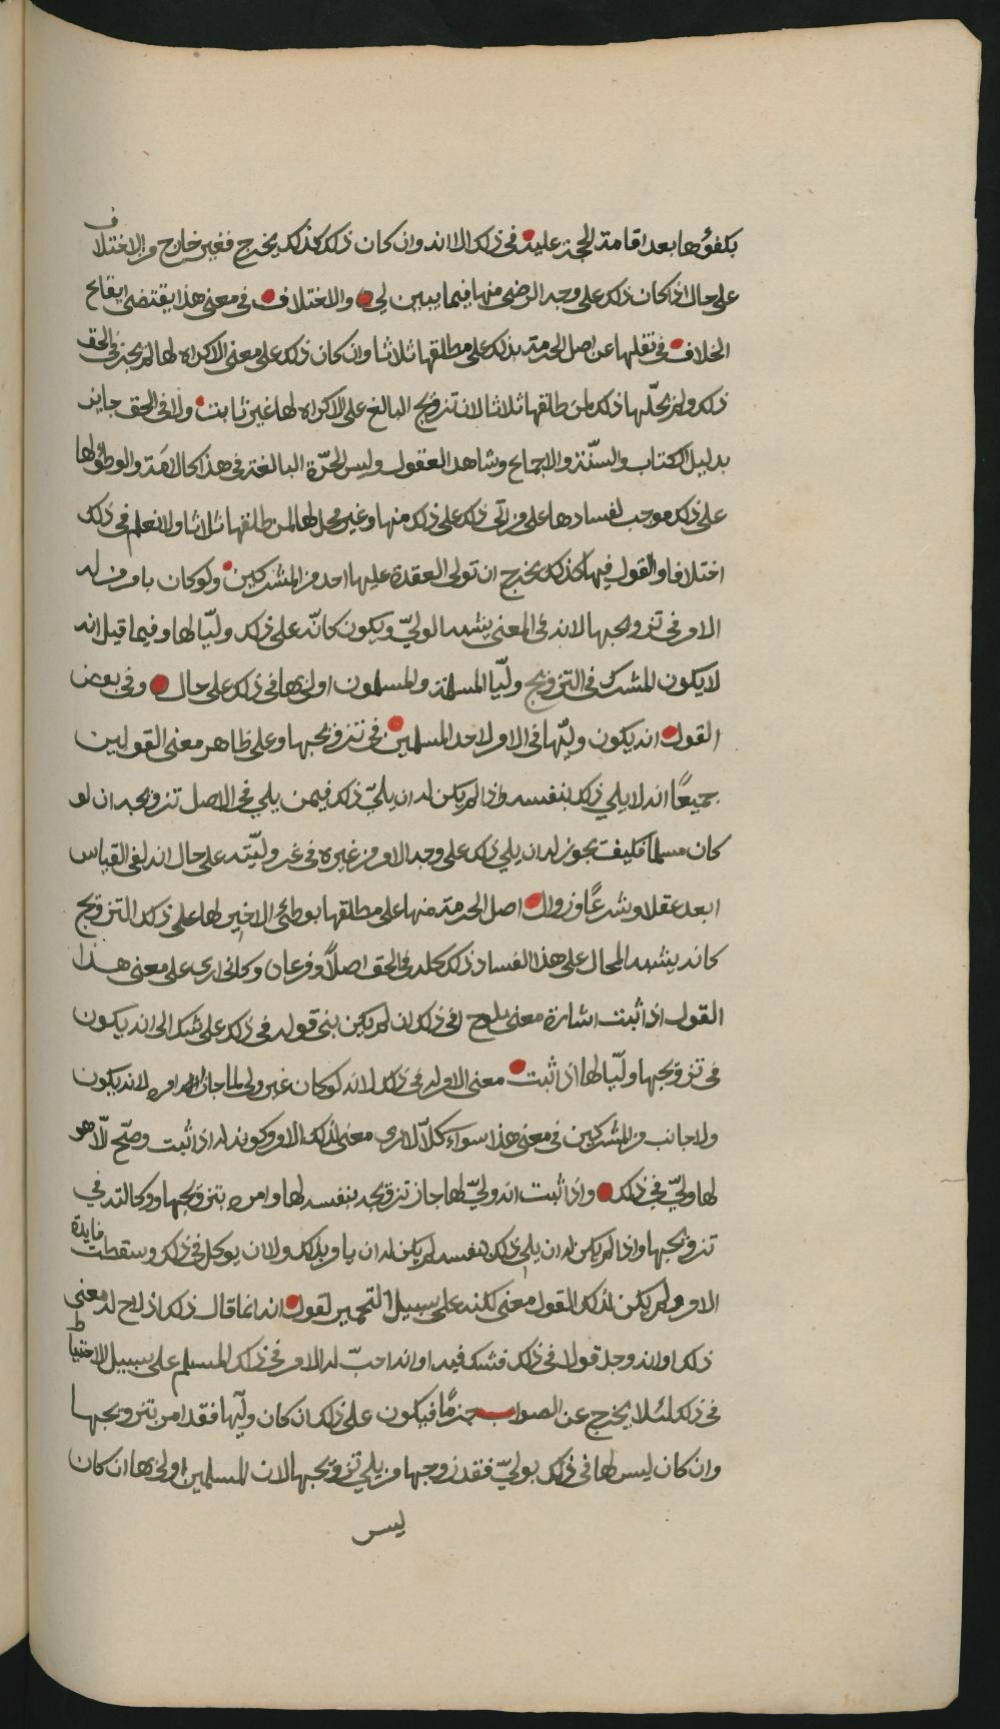 بكفؤها بعد اقامة الحجة عليه في ذلك الا انه وان كان ذلك كذلك يخرج فغير خارج من الاختلاف
على حال اذا كان ذلك على وجه الرضى منها فيما يبين لي والاختلاف في معنى هذا يقتضى ايقاع
الخلاف في نقلها عن اصل الحرمة بذلك على مطلقها ثلاثا وان كان ذلك على معنى الاكراه لها لم يجز في الحق
ذلك ولم يحلّها ذلك لمن طلقها ثلاثا لان تزويج البالغ على الاكراه لها غير ثابت ولا في الحق جايز
بدليل الكتاب والسنّة والاجماع وشاهد العقول وليس الحرّة البالغة في هذا كالامَة والوطؤ لها
على ذلك موجب لفسادها على من اتى ذلك على ذلك منها وغير محل لها لمن طلقها ثلاثا ولا نعلم في ذلك
اختلافا والقول فيها كذلك يخرج ان تولى العقدة عليها احد من المشركين ولو كان بامر من له
الامر في تزويجها لانه في المعنى يشبه الوليّ ويكون كانّه على ذلك وليّا لها وفيما قيل انه
لا يكون المشرك في التزويج وليّا لمسلمة والمسلمون اولى بها في ذلك على حال وفي بعض
القول انه يكون وليّها في الامر لاحد المسلمين في تزويجها وعلى ظاهر معنى القولين
جميعًا انه لا يلي ذلك بنفسه واذا لم يكن له ان يليّ ذلك فيمن يلي في الاصل تزويجه ان لو
كان مسلما فكيف يجوز له ان يلي ذلك على وجه الامر من غيره في غير وليّته على حال انه لفي القياس
ابعد عقلا وشرعًا وزوال اصل الحرمة منها على مطلقها بوطئ الاخير لها على ذلك التزويج
كانه يشبه المحال على هذا الفساد ذلك كله في الحق اصلاً وفرعا وكاني ارى على معنى هذا
القول اذا ثبت اشارة معنى يلوح في ذلك ان لم يكن بنى قوله في ذلك على شك الى انه يكون
في تزويجها وليّا لها اذا ثبت معنى الامر له في ذلك لانه لو كان غير ولي لما جاز امره لانه يكون
والاجانب من المشركين في معنى هذا سواء كلاّ لا ارى معنى لذلك الامر وكونه له اذا ثبت وصّح الّا هو
لها وليّ في ذلك واذا ثبت انه وليّ لها جاز تزويجه بنفسه لها وامره بتزويجها ووكالته في
تزويجها واذا لم يكن له ان يلي ذلك بنفسه لم يكن له ان يامر بذلك ولا ان يوكل في ذلك وسقطت فايدة
الامر ولم يكن لذلك القول معنى لكنه على سبيل التحمير لقول انه انما قال ذلك اذ لاح له معنى
ذلك او انه وجد قولا في ذلك فشك فيه او انه احبّ له الامر في ذلك المسلم على سبيل الاحتياط
في ذلك لئلا يخرج عن الصواب جزمًا فيكون على ذلك ان كان وليّها فقد امر بتزويجها
وان كان ليس لها في ذلك بوليّ فقد زوجها من يلي تزويجها لان المسلمين اولى بها ان كان
ليس